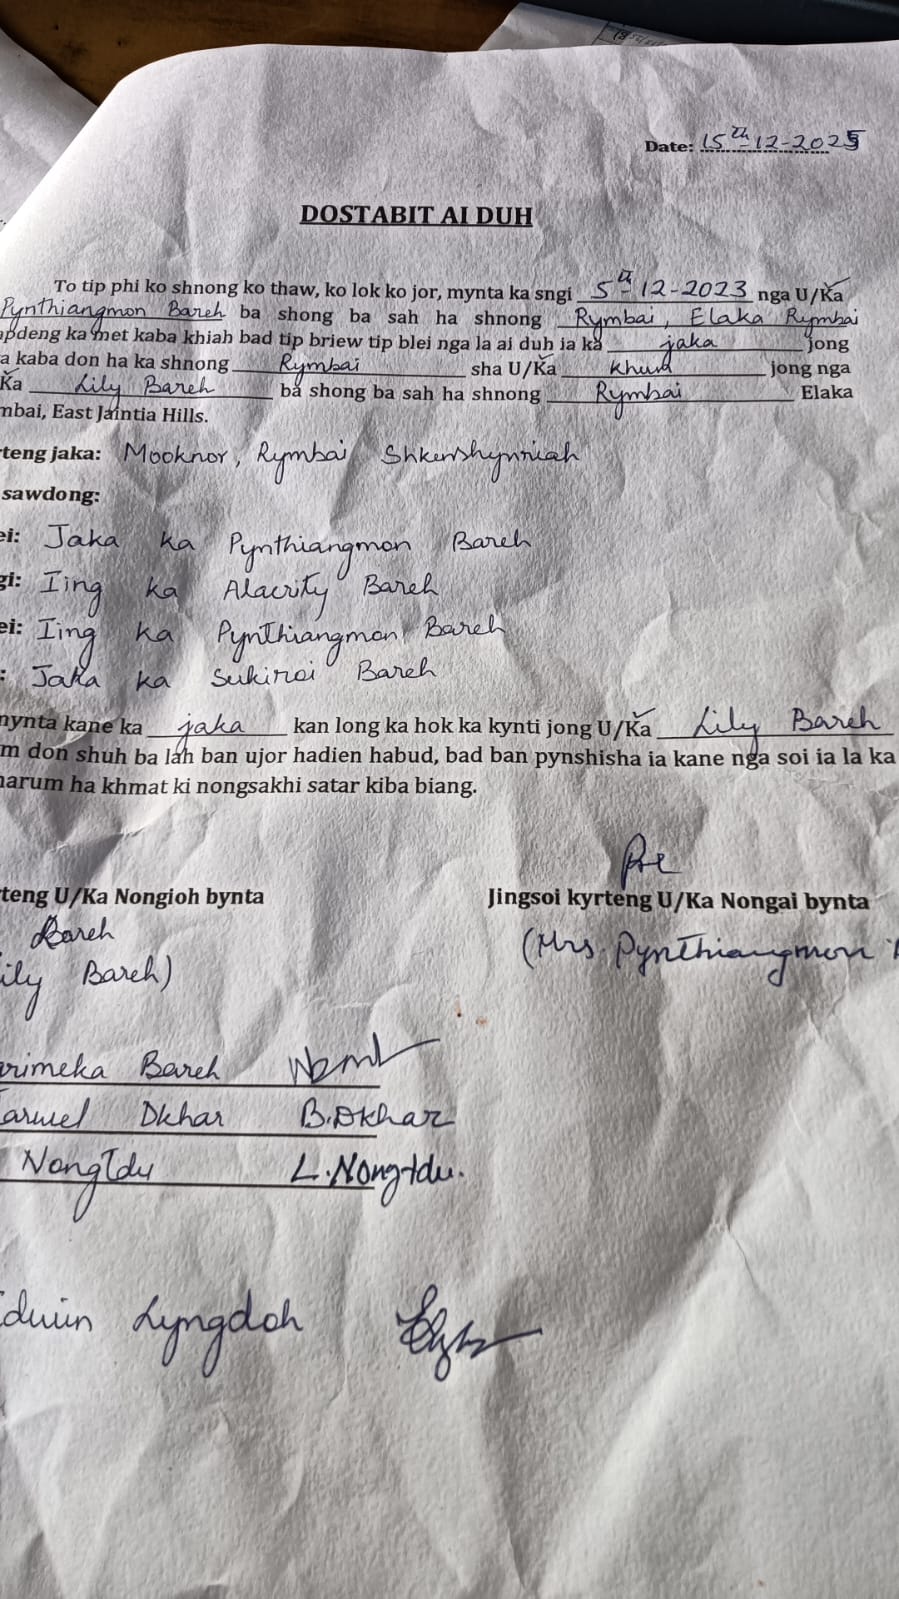 Date: 15th-12-2025
DOSTABIT AI DUH
To tip phi ko shnong ko thaw, ko lok ko jor, mynta ka sngi 5th-12-2023 nga U/Ka
Pynthiangmon Bareh ba shong ba sah ha shnong Rymbai, Elaka Rymbai
apdeng ka met kaba khiah bad tip briew tip blei nga la ai duh ia ka jaka jong
a kaba don ha ka shnong Rymbai sha U/Ka khun jong nga
Ka Lily Bareh ba shong ba sah ha shnong Rymbai Elaka
mbai, East Jaintia Hills.
rteng jaka: Mooknor, Rymbai Shkenshynriah
sawdong:
ei: Jaka ka Pynthiangmon Bareh
gi: Iing ka Alacrity Bareh
ei: Iing ka Pynthiangmon Bareh
: Jaka ka Sukiroi Bareh
mynta kane ka jaka kan long ka hok ka kynti jong U/Ka Lily Bareh
m don shuh ba lah ban ujor hadien habud, bad ban pynshisha ia kane nga soi ia la ka
harum ha khmat ki nongsakhi satar kiba biang.
rteng U/Ka Nongioh bynta
Jingsoi kyrteng U/Ka Nongai bynta
Bareh
(Mrs. Pynthiangmon
ily Bareh)
arimeka Bareh
armel Dkhar B.Dkhar
Nongtdu L.Nongtdu.
Edwin Lyngdoh